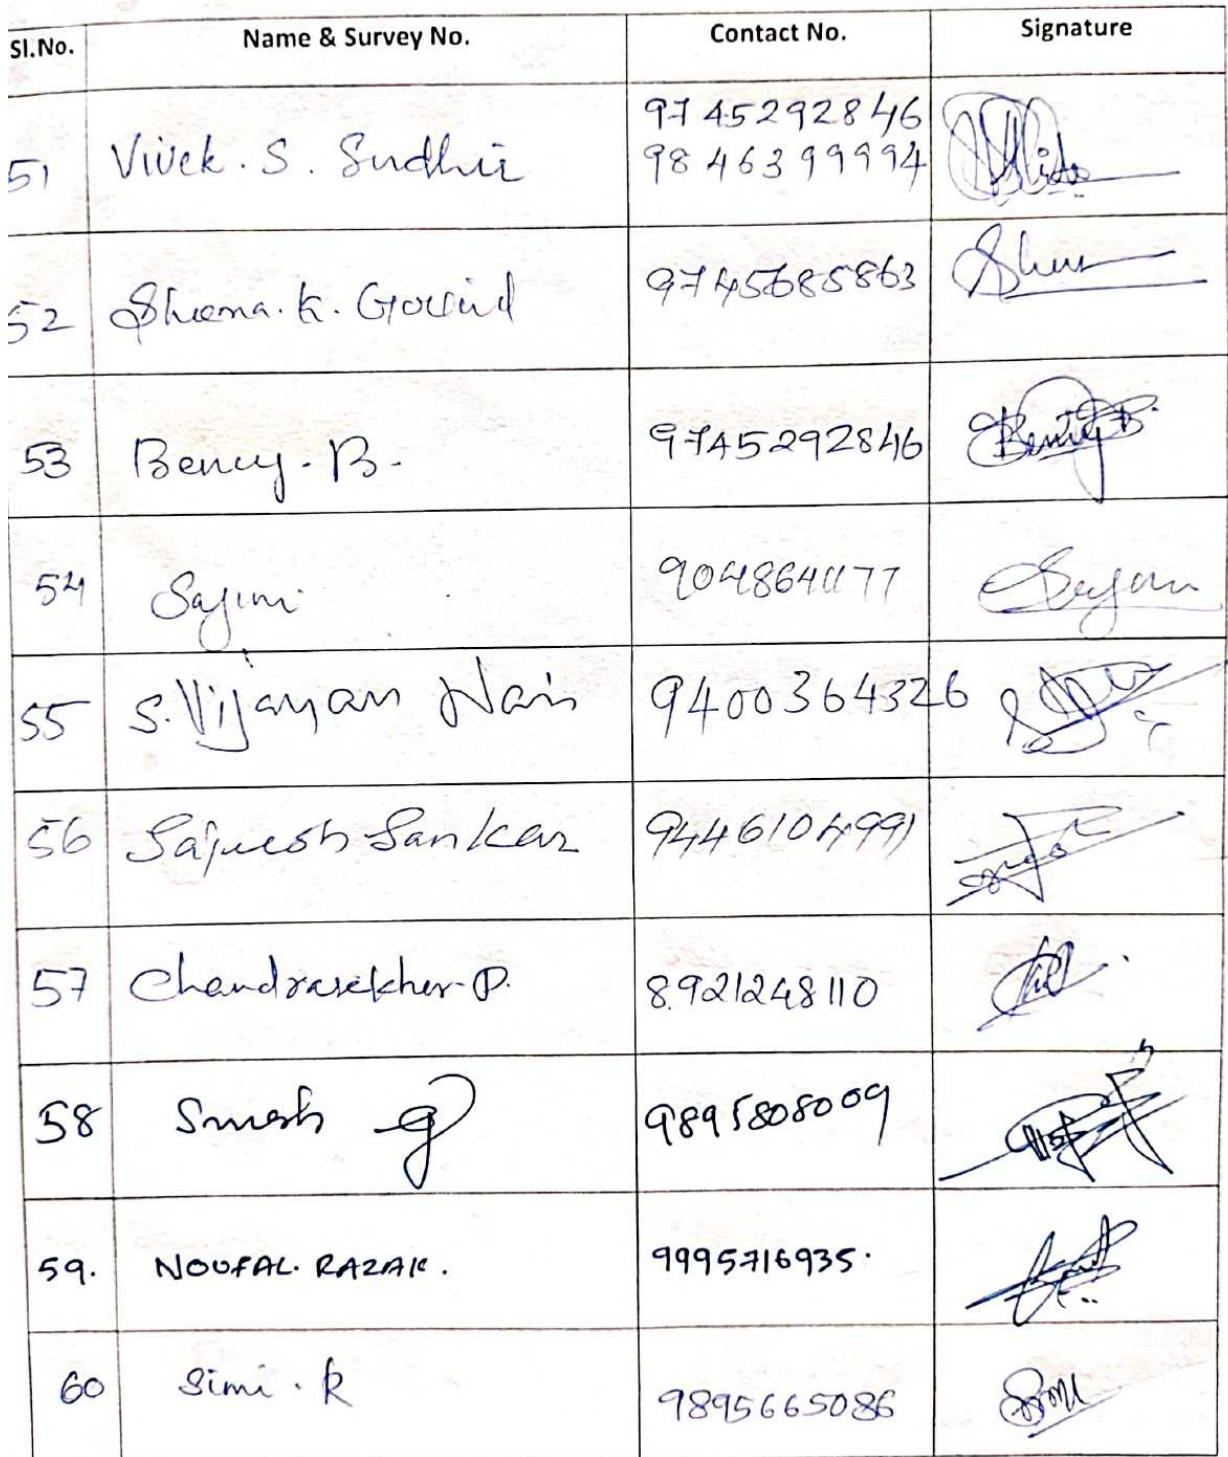 Sl.No. Name & Survey No. Contact No. Signature
9745292846
51 Vivek. S. Sudhir 9846399994
52 Sheena. K. Govind 9745685863
53 Bency. B. 9745292846 Bency B.
54 Sajini 9048641177
55 S. Vijayan Nair 9400364326
56 Sajeesh Sankar 9446104991
57 Chandrasekher. P. 8921248110
58 g 9895808009
59. NOUFAL. RAZAK. 9995716935.
60 Simi. R 9895665086 Simi